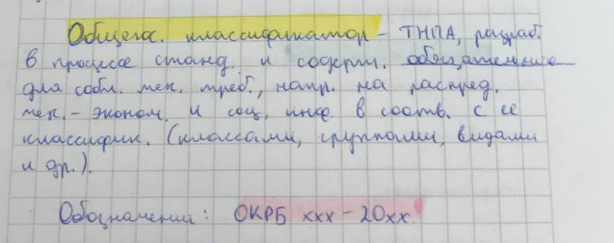 Общегос. классификатор – ТНПА, разраб.
в процессе станд. и содерж. обязательные
для собл. тех. треб., напр. на распред.
тех.-эконом. и соц. инф. в соотв. с ее
классифик. (классами, группами, видами
и др.).
Обозначение: ОКРБ ххх – 20хх